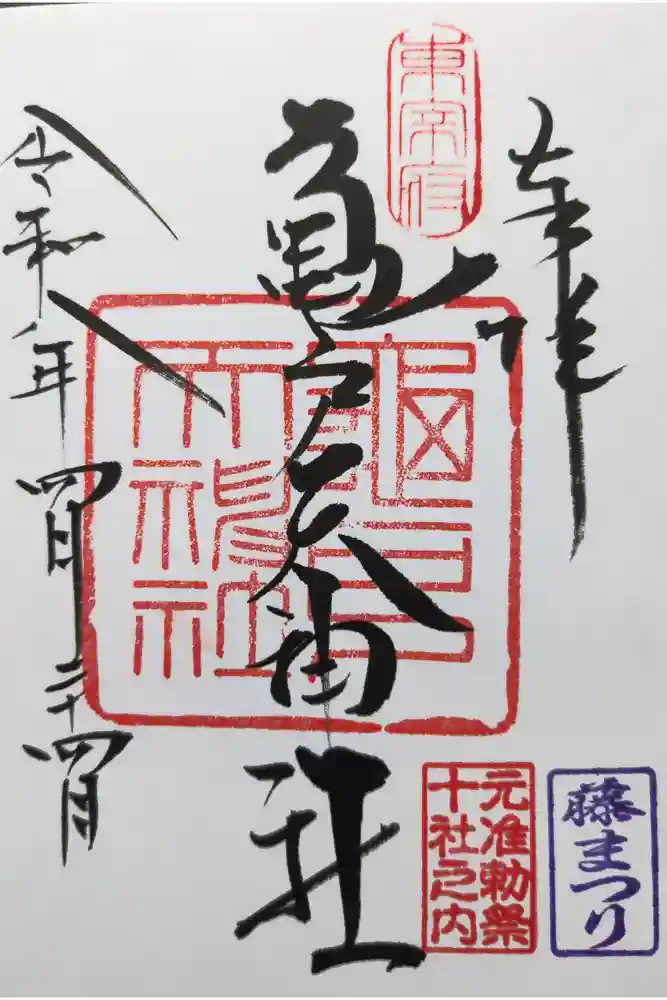 奉拝
東宰府
亀戸天神社
令和八年四月二十四日
藤まつり
元准勅祭
十社之内